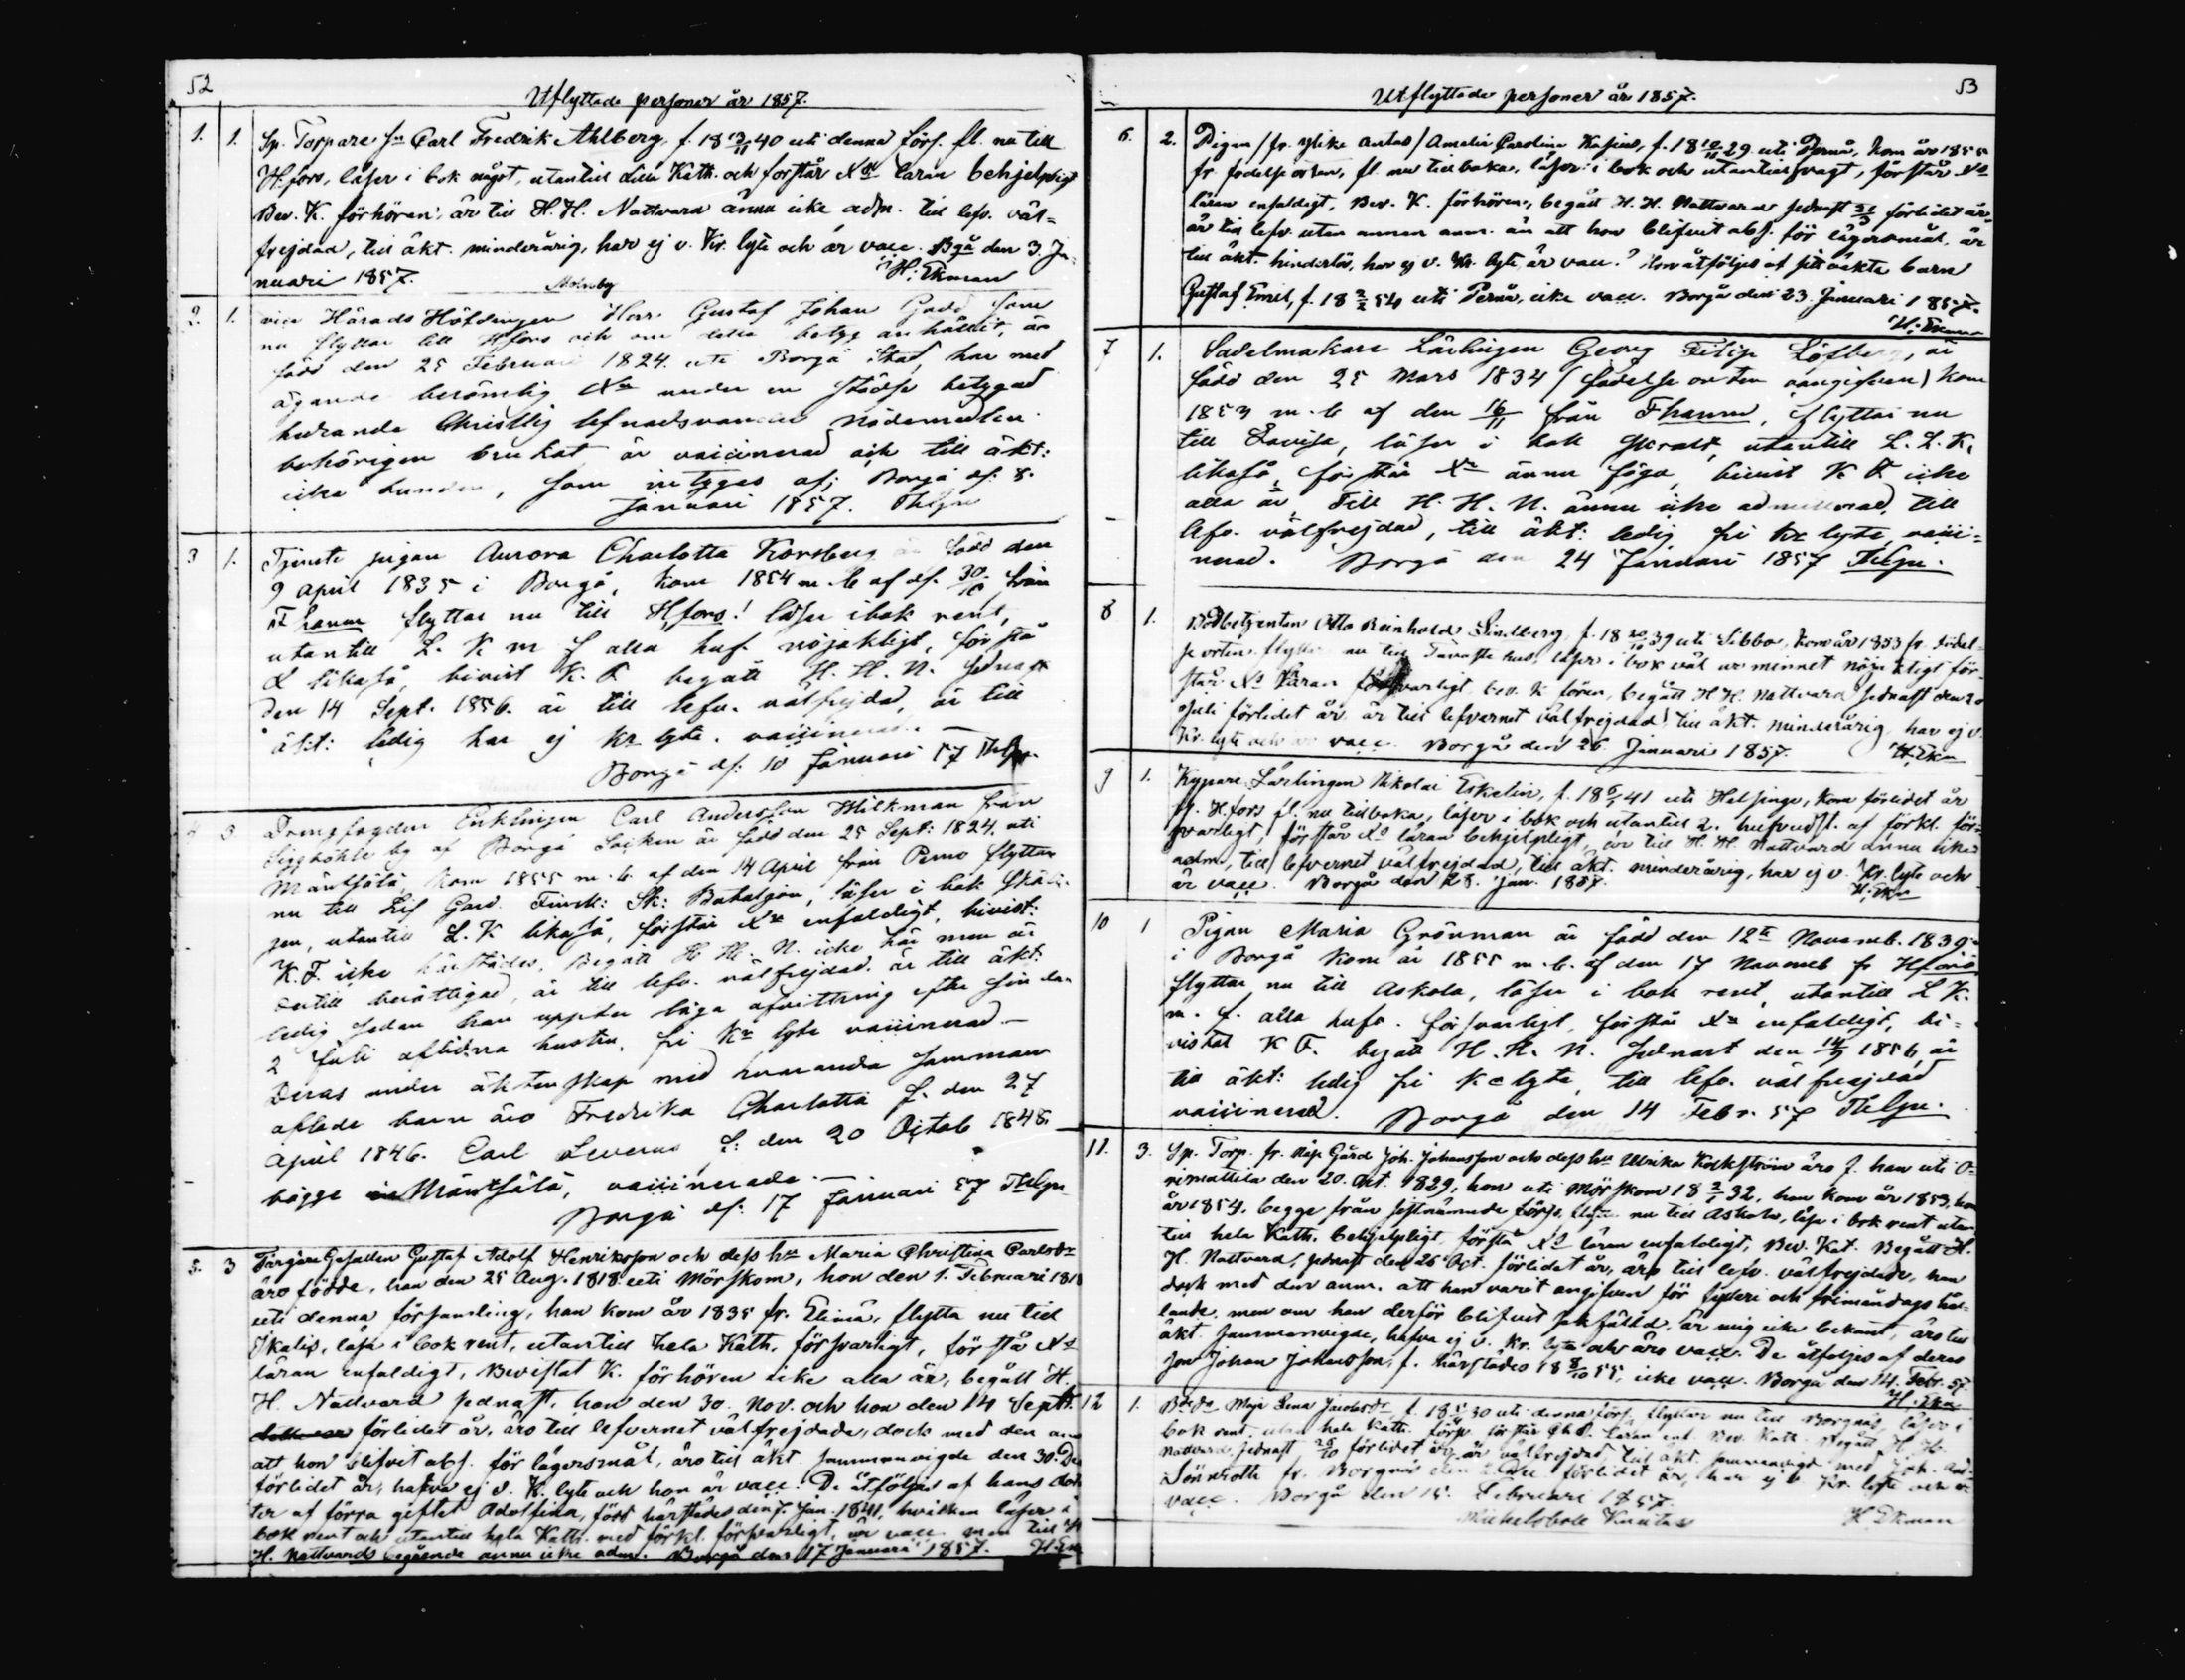 52
Utflyttade personer år 1857.
1. 1. Sp. Torpare Sn Carl Fredrik Ahlberg, f. 18 13/11 40 uti denna förs. fl. nu till
H.fors, läser i bok något, utantill lilla Kath. och förstår Xd läran behjelpligt
Bev. K. förhören, är till H. H. Nattvard ännu icke adm. till lefv. väl-
frejdad, till äkt. minderårig, har ej v. Kr. lyte och är vacc. Bgå den 3 Ja-
nuari 1857. H. Ekman
2. 1. vice Härads Höfdingen Herr Gustaf Johan som
nu flyttar till Hfors och om detta betyg anhållit, är
född den 25 Februari 1824 uti Borgå Stad, har med
ägande berömlig Xs under en städse betygad
hedrande Christlig lefnadsvandel nådemedlen
behörigen brukat är vaccinerad och till äkt:
icke bunden, som intygas af; Borgå df: 8.
Januari 1857.
3 1. Tjenste pigan Aurora Charlotta Korsberg är född den
9 April 1835 i Borgå, kom 1854 m. b. af df. 30/10 från
Fhamn flyttar nu till Hfors! läser i bok rent,
utantill L. K m f alla huf. nöjaktigt, förstå
d likaså, bivist K. F. begått H. H. N. sednast
den 14 Sept. 1856. är till lefv. välfrejdad, är till
äkt: ledig har ej Kr lyte. vaccinerad.
Borgå df: 10 Januari 57
4 3 Drengfogden Enklingen Carl Andersson Wilkman från
by af Borgå Socken är född den 25 Sept: 1824. uti
Mäntsälä, kom 1855 m. b. af den 14 April från Perno flyttar
nu till Lif Gard. Finsk: Sk: Bataljon, läser i bok
utantill L. K likaså, förstår Xn enfaldigt, bivist:
K. F. icke härstädes, Begått H H. N. icke här men är
dertill berättigad, är till lefv. välfrejdad. är till äkt:
ledig sedan han uppter laga afvittring efter sin den
2 Juli aflidna hustru, fri Kr lyte vaccinerad.—
Deras under äktenskap med hvarandra samman
aflade barn äro Fredrika Charlotta f. den 27
April 1846. Carl Severus f: den 20 Octob 1848.
bägge i Mäntsälä, vaccinerade.—
Borgå df: 17 Januari 57
5. 3 Färgare Gesällen Gustaf Adolf Henriksson och dess hu Maria Christina Carlsdr
äro födde, han den 25 Aug. 1818 uti Mörskom, hon den 1. Februari 1818
uti denna församling, han kom år 1835 fr. Elimä, flytta nu till
Ikalis, läsa i bok rent, utantill hela Kath. försvarligt, förstå Xd
läran enfaldigt, Bevistat K. förhören icke alla år, begått H.
H. Nattvard sednast, han den 30. Nov. och hon den 14 Septb.
förlidet år, äro till lefvernet välfrejdade, dock med den anm
att hon blifvit abs. för lägersmål, äro till äkt. sammanvigde den 30. De
förlidet år, hafva ej v. K. lyte och hon är vacc. De åtföljas af hans dot
ter af förra giftet Adolfina, född härstädes den 7. Jan. 1841, hvilken läser i
bok rent och utantill hela Kath. med förkl. försvarligt, är vacc. men till H
H. Nattvards begående ännu icke adm. Borgå den 17 Januari 1857. H. Em
53
Utflyttade personer år 1857.
6. 2. Pigan Amelie Carolina f. 18 10/11 29 uti Pernå, kom år 1855
fr. födelse orten, fl. nu tillbaka, läser i bok och utantill svagt, förstår Xd
läran enfaldigt, Bev. K. förhören, begått H. H. Nattvard sednast förlidet år
är till lefv. utan annan anm. än att hon blifvit abs. för lägersmål, är
till äkt. hinderlös, har ej v. Kr. lyte, är vacc.? Hon åtföljes af sitt oäkta barn
Gustaf Emil, f. 18 2/2 54 uti Pernå, icke vacc. Borgå den 23 Januari 1857.
H. Ekman
7 1. Sadelmakare Lärlingen Georg Filip Löfberg, är
född den 25 Mars 1834 (födelse orten oangifven) kom
1853 m. b. af den 16/11 från Fhamn, flyttar nu
till Lovisa, läser i bok utantill L. L. K.
likaså, förstår Xn ännu föga, bivist K F icke
alla år, till H. H. N. ännu icke admitterad, till
lefv. välfrejdad, till äkt: ledig fri Kr lyte, vacci-
nerad. Borgå den 24 Januari 1857
8 1. Otto Reinhold Lindberg, f. 18 20/10 39 uti Sibbo, kom år 1853 fr. födel-
se orten, flyttar nu till Tavastehus, läser i bok väl ur minnet nöjaktigt för-
står Xd läran försvarligt, bev. K. fören, begått H. H. Nattvard sednast den 20
Juli förlidet år, är till lefvernet välfrejdad! till äkt. minderårig, har ej v.
Kr. lyte och är vacc. Borgå den 26 Januari 1857. H. Ekm
9 1. Kypare Lärlingen Nikolai Eskelin, f. 18 6/1 41 uti Helsinge, kom förlidet år
fr. H.fors fl. nu tillbaka, läser i bok och utantill 2. hufvudst. af förkl. för-
svarligt, förstår Xd läran behjelpligt, är till H. H. Nattvard ännu icke
adm., till lefvernet välfrejdad, till äkt. minderårig, har ej v. Kr. lyte och
är vacc. Borgå den 28. Jan. 1857. H. Ekm
10 1 Pigan Maria Grönman är född den 12te Novemb. 1839
i Borgå kom år 1855 m. b. af den 17 Novemb fr Hfors
flyttar nu till Askola, läser i bok rent, utantill L K.
m. f. alla hufv. försvarligt, förstår Xn enfaldigt, bi-
vistat K F. begått H. H. N. sednast den 14/9 1856, är
till äkt: ledig fri Kr lyte, till lefv. välfrejdad
vaccinerad. Borgå den 14 Febr. 57
11. 3. Sp. Torp. fr. Gård Joh. Johansson och dess hu Ulrika Kockström äro f. han uti O-
rimattila den 20. Okt. 1829, hon uti Mörskom 18 2/2 32, han kom år 1853, hon
år 1854, begge från sistnämnde förs., flytta nu till Askola, läse i bok rent utan
till hela Kath. behjelpligt, förstå Xd läran enfaldigt, Bev. Kat. Begått H.
H. Nattvard, sednast den 26 Oct. förlidet år, äro till lefv. välfrejdade, han
dock med den anm. att han varit angifven för och
men om han derför blifvit sakfälld, är mig icke bekant, äro till
äkt. sammanvigde, hafva ej v. Kr. lyte och äro vacc. De åtföljas af deras
son Johan Johansson, f. härstädes 18 8/10 55, icke vacc. Borgå den 14. Febr. 57.
H. Ekm
12 1. Maja Lena Jacobsdr f. 18 30 uti denna förs. flyttar nu till Borgnäs, läser i
bok rent, utan hela Kath. förstår Chr. läran enf. Bev. Kath. Begått H. H.
Nattvard, sednast 26/10 förlidet år, är välfrejdad, till äkt. sammanvigd med Joh.
Lönnroth fr. Borgnäs den förlidet år, har ej v. Kr. lyte och är
vacc. Borgå den 15. Februari 1857.
H Ekman